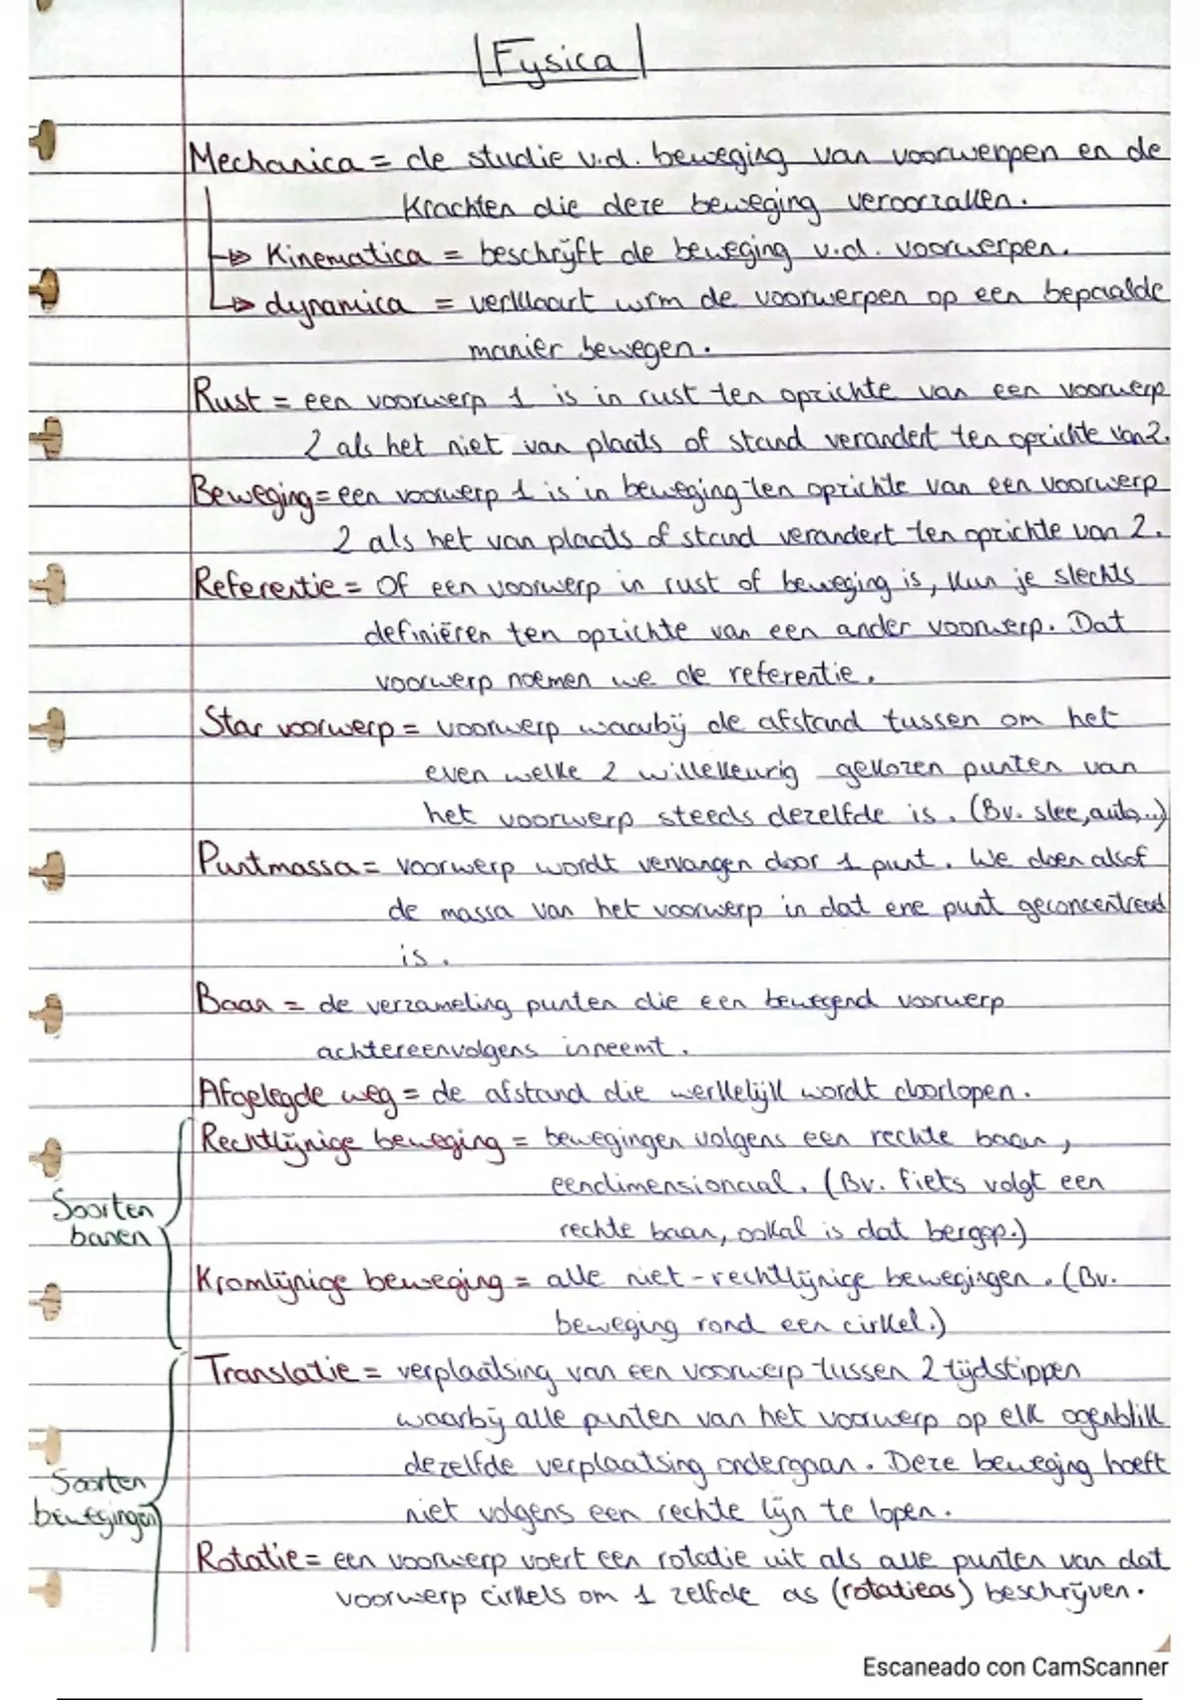 Fysica
Mechanica = de studie v.d. beweging van voorwerpen en de
krachten die deze beweging veroorzaken.
Kinematica = beschrijft de beweging v.d. voorwerpen.
dynamica = verklaart wrm de voorwerpen op een bepaalde
manier bewegen.
Rust = een voorwerp 1 is in rust ten opzichte van een voorwerp
2 als het niet van plaats of stand verandert ten opzichte van 2.
Beweging = een voorwerp 1 is in beweging ten opzichte van een voorwerp
2 als het van plaats of stand verandert ten opzichte van 2.
Referentie = Of een voorwerp in rust of beweging is, kun je slechts
definiëren ten opzichte van een ander voorwerp. Dat
voorwerp noemen we de referentie.
Star voorwerp = voorwerp waarbij de afstand tussen om het
even welke 2 willekeurig gekozen punten van
het voorwerp steeds dezelfde is. (Bv. slee, auto,...)
Puntmassa = voorwerp wordt vervangen door 1 punt. We doen alsof
de massa van het voorwerp in dat ene punt geconcentreerd
is.
Baan = de verzameling punten die een bewegend voorwerp
achtereenvolgens inneemt.
Afgelegde weg = de afstand die werkelijk wordt doorlopen.
Rechtlijnige beweging = bewegingen volgens een rechte baan,
eendimensionaal. (Bv. fiets volgt een
Soorten
banen
rechte baan, ookal is dat bergop.)
Kromlijnige beweging = alle niet-rechtlijnige bewegingen. (Bv.
beweging rond een cirkel.)
Translatie = verplaatsing van een voorwerp tussen 2 tijdstippen
waarbij alle punten van het voorwerp op elk ogenblik
dezelfde verplaatsing ondergaan. Deze beweging hoeft
Soorten
bewegingen
niet volgens een rechte lijn te lopen.
Rotatie = een voorwerp voert een rotatie uit als alle punten van dat
voorwerp cirkels om 1 zelfde as (rotatieas) beschrijven.
Escaneado con CamScanner